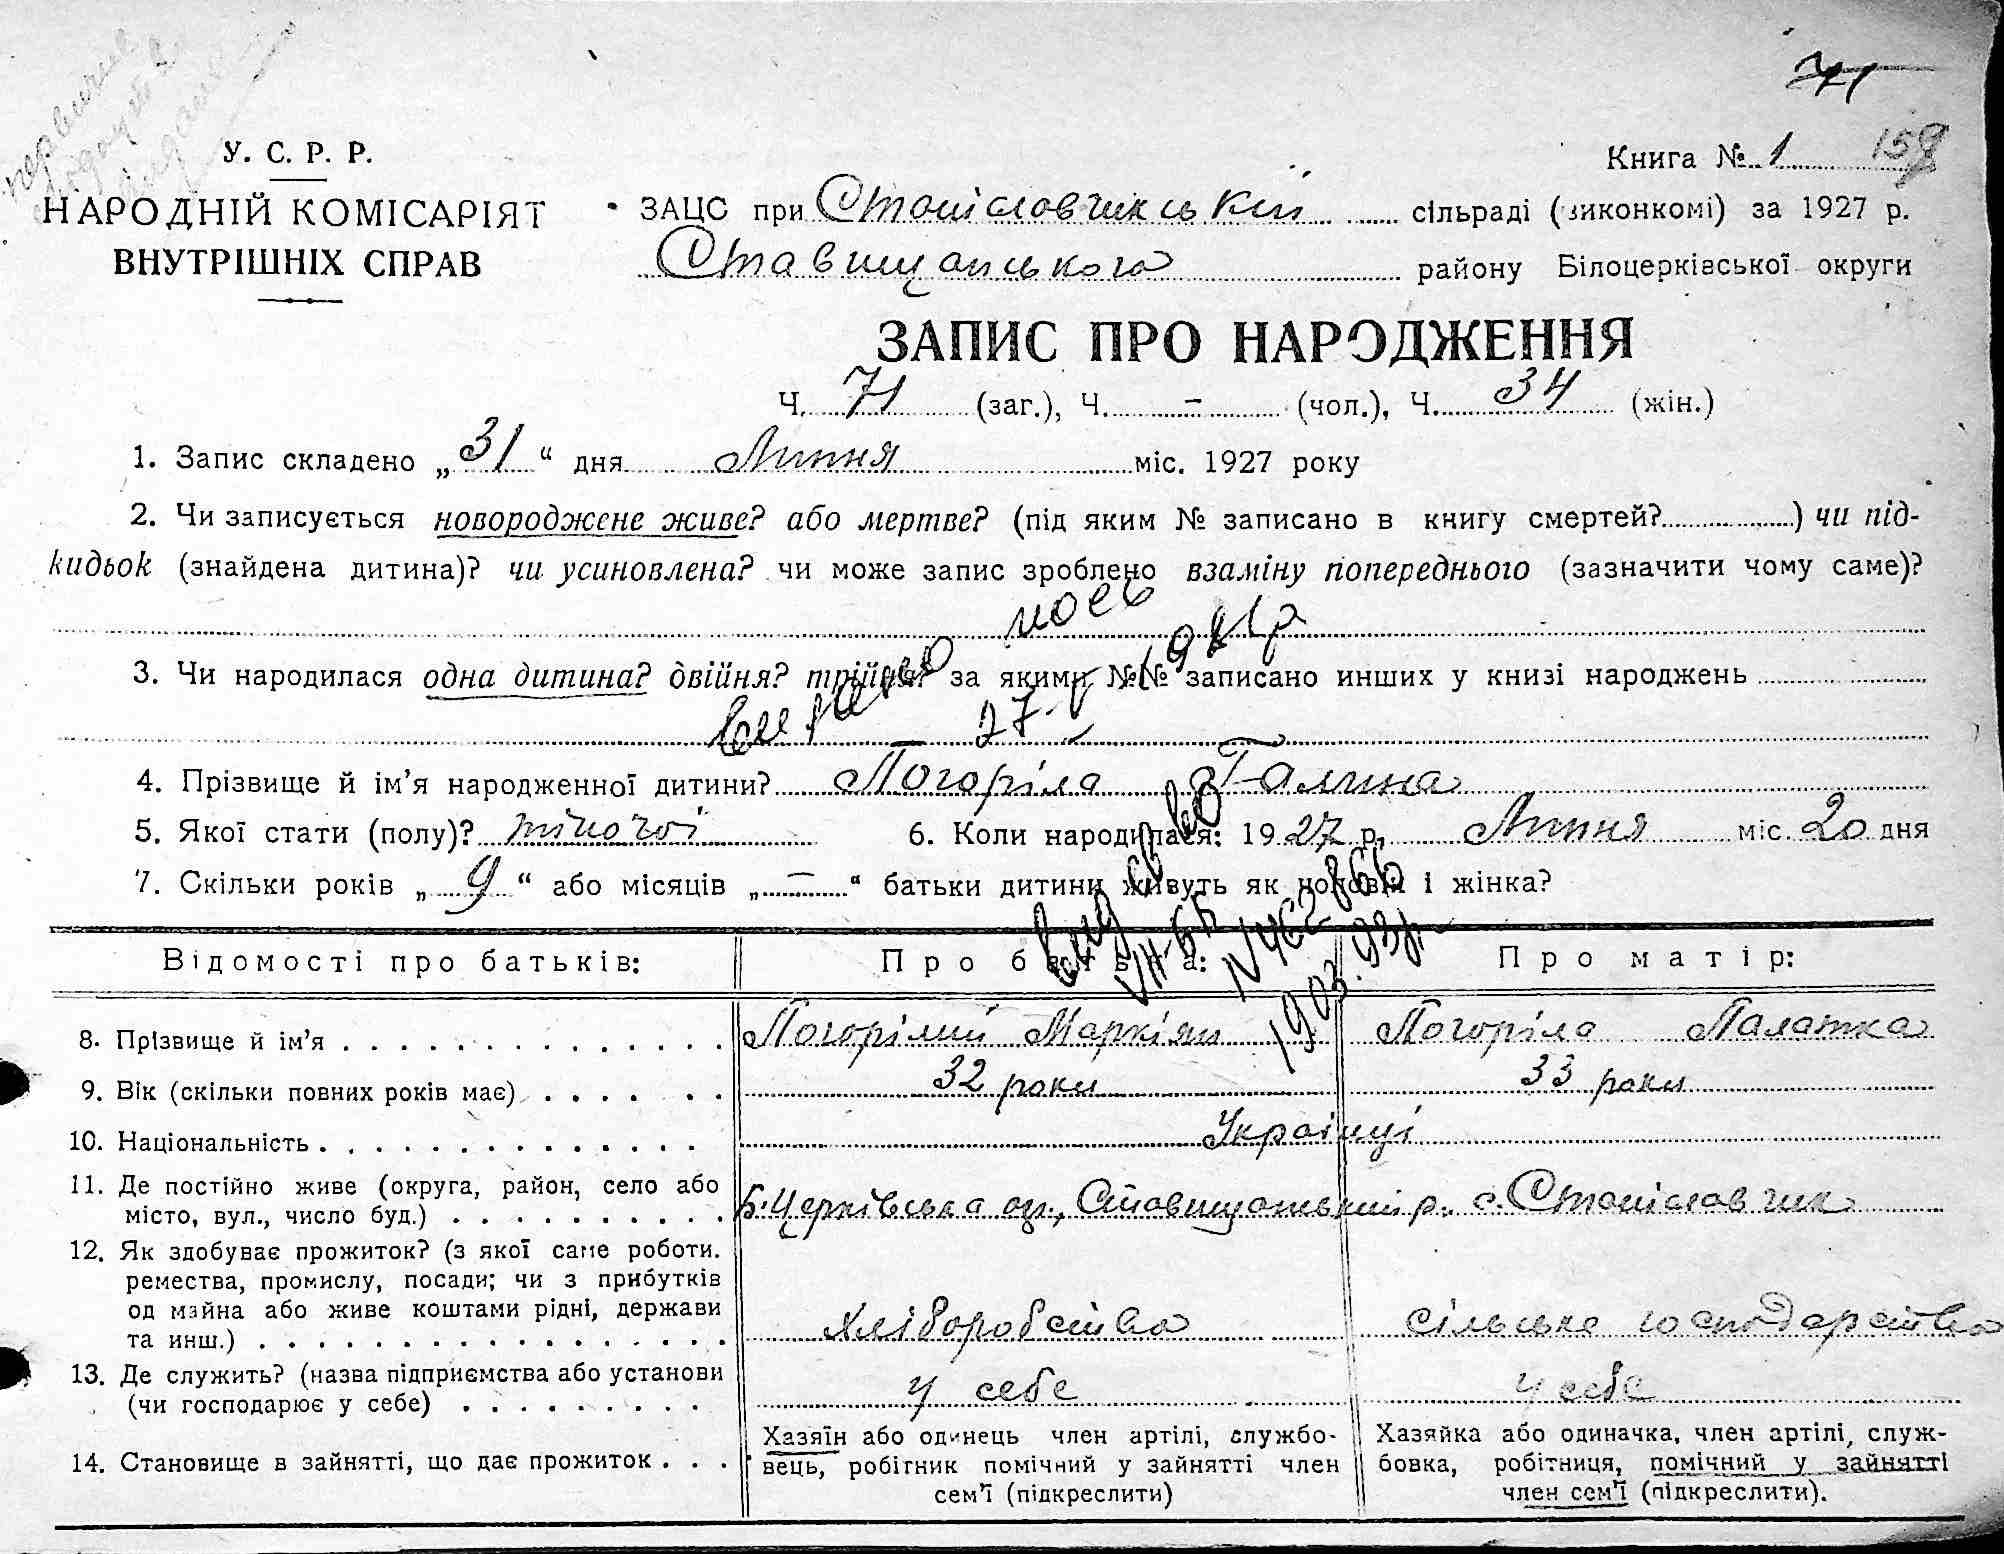 71
У. С. Р. Р.
НАРОДНІЙ КОМІСАРІЯТ
ВНУТРІШНІХ СПРАВ
Книга № 1 159
ЗАЦС при Станіславчикській сільраді (виконкомі) за 1927 р.
Ставищанського району Білоцерківської округи
ЗАПИС ПРО НАРОДЖЕННЯ
Ч. 71 (заг.), Ч. - (чол.), Ч. 34 (жін.)
1. Запис складено „31“ дня Липня міс. 1927 року
2. Чи записується новороджене живе? або мертве? (під яким № записано в книгу смертей?) чи під-
кидьок (знайдена дитина)? чи усиновлена? чи може запис зроблено взаміну попереднього (зазначити чому саме)?
3. Чи народилася одна дитина? двійня? трійня? за якими №№ записано инших у книзі народжень
4. Прізвище й ім’я народженної дитини? Погоріла Галина
5. Якої стати (полу)? жіночої 6. Коли народилася: 1927 р, Липня міс. 20 дня
7. Скільки років „9“ або місяців „-“ батьки дитини живуть як чоловік і жінка?
Відомості про батьків: Про батька: Про матір:
8. Прізвище й ім’я Погорілий Маркіян Погоріла Палажка
9. Вік (скільки повних років має) 32 роки 33 роки
10. Національність Українці
11. Де постійно живе (округа, район, село або
місто, вул., число буд.) Б.Церківська ок., Ставищанський р. с. Станіславчик
12. Як здобуває прожиток? (з якої саме роботи.
ремества, промислу, посади; чи з прибутків
од майна або живе коштами рідні, держави
та инш.) Хліборобство сільське господарство
13. Де служить? (назва підприємства або установи
(чи господарює у себе) у себе у себе
14. Становище в зайнятті, що дає прожиток
Хазяїн або одинець член артілі, службо-
вець, робітник помічний у зайнятті член
сем’ї (підкреслити)
Хазяйка або одиначка, член артілі, служ-
бовка, робітниця, помічний у зайнятті
член сем’ї (підкреслити).